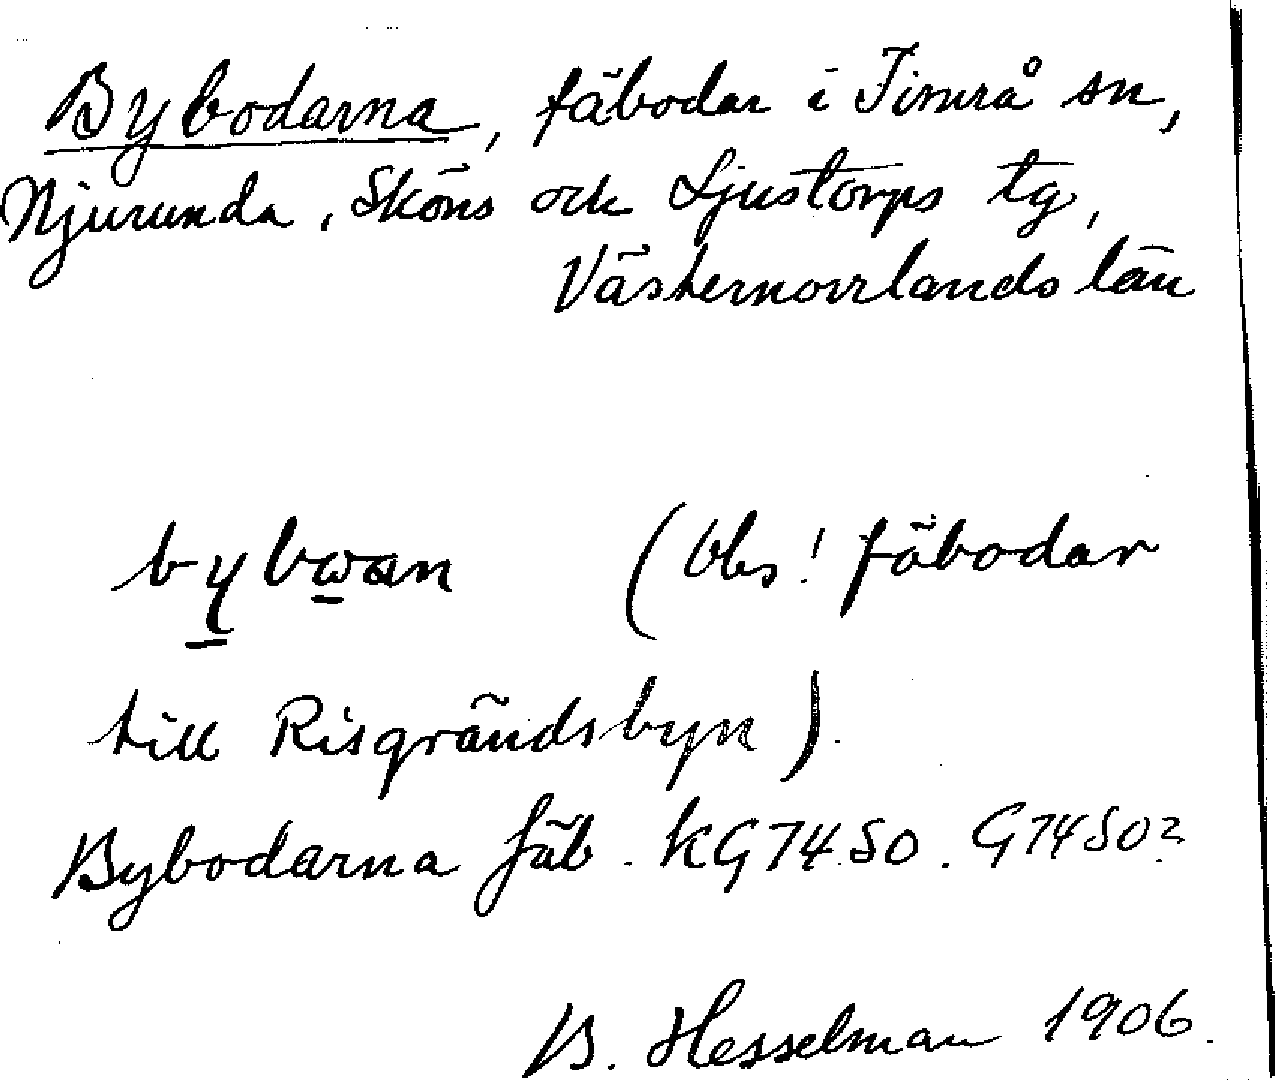 Bybodarna, fäbodar i Timrå sn,
Njurunda, Sköns och Ljustorps tg,
Västernorrlands län
(Obs! fäbodar
till Risgrändsbyn).
Bybodarna fäb. KG74SO. G74SO?
B. Hesselman 1906.